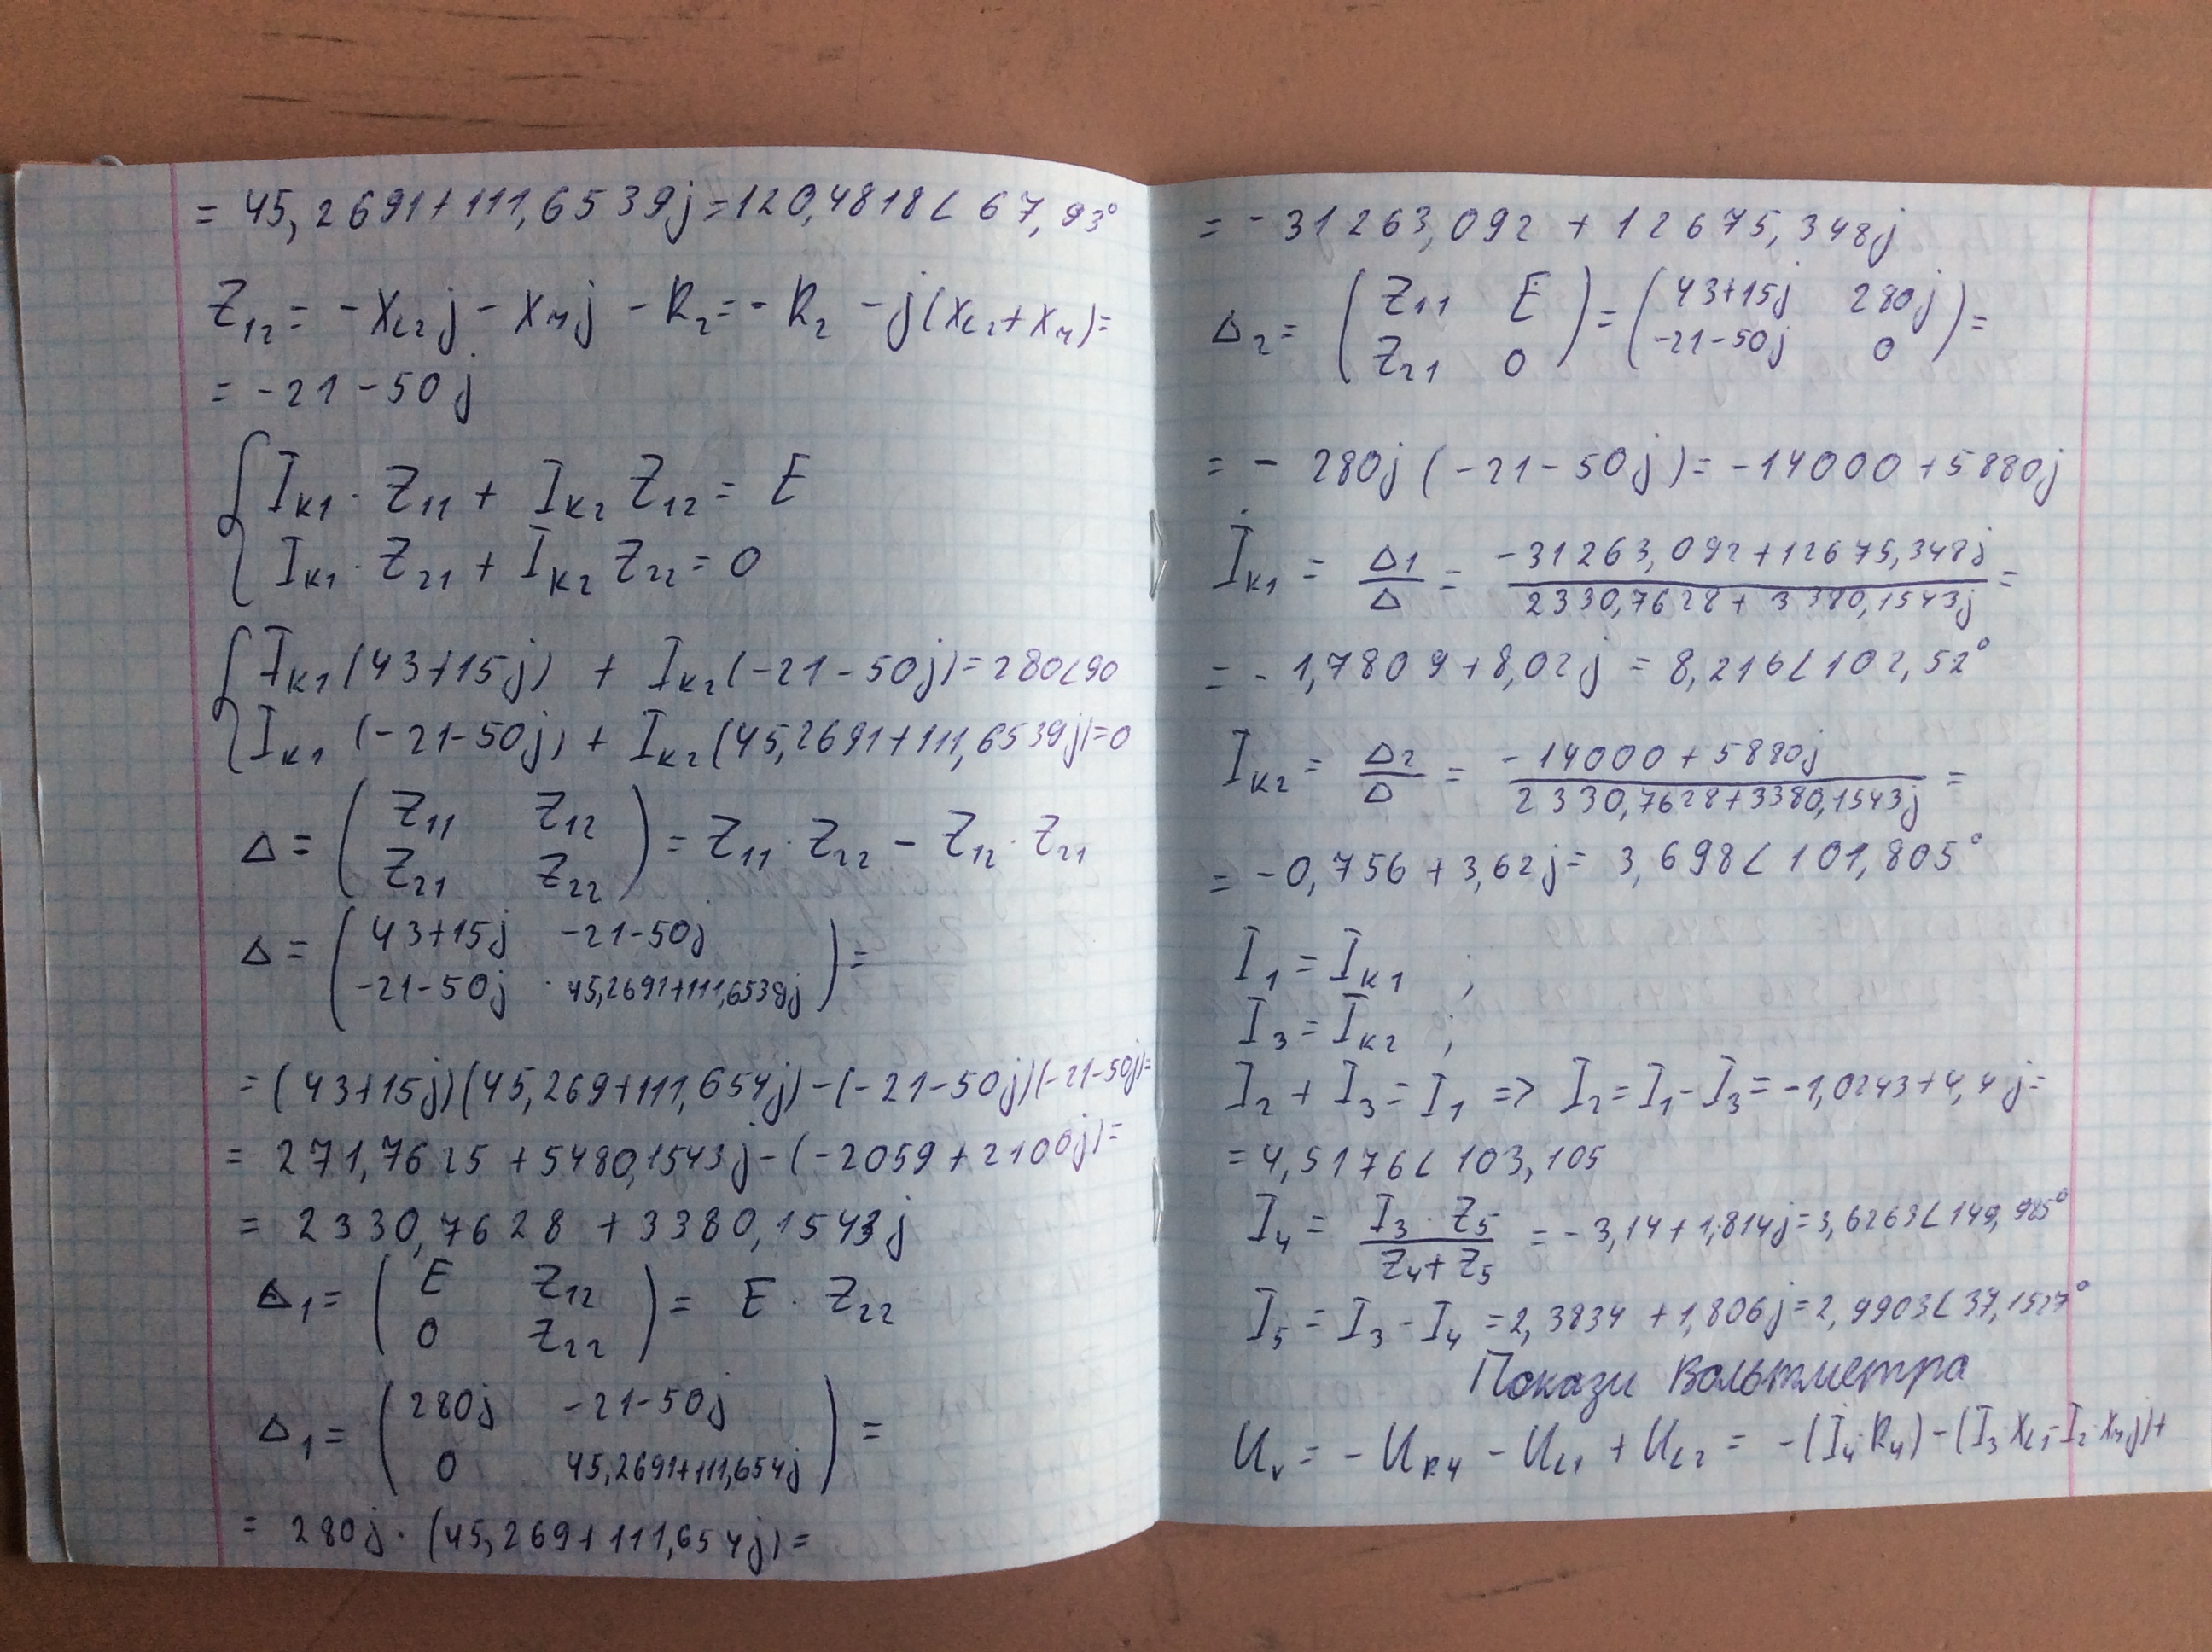 = 45,2691+111,6539j=120,4818<67,93°
Z₁₂ = -X_L₂j - X_Mj - R₂ = -R₂ - j(X_L₂+X_M)=
= -21-50j
{ I_K1 · Z₁₁ + I_K2 Z₁₂ = E
I_K1 · Z₂₁ + I_K2 Z₂₂ = 0
{ I_K1(43+15j) + I_K2(-21-50j)=280<90
I_K1 (-21-50j) + I_K2(45,2691+111,6539j)=0
Δ = (Z₁₁ Z₁₂
Z₂₁ Z₂₂) = Z₁₁ · Z₂₂ - Z₁₂ · Z₂₁
Δ = (43+15j -21-50j
-21-50j 45,2691+111,6539j) =
= (43+15j)(45,269+111,654j)-(-21-50j)(-21-50j)=
= 271,7625+5480,1543j-(-2059+2100j)=
= 2330,7628 + 3380,1543j
Δ₁ = (E Z₁₂
0 Z₂₂) = E · Z₂₂
Δ₁ = (280j -21-50j
0 45,2691+111,654j) =
= 280j · (45,269+111,654j)=
= -31263,092 + 12675,348j
Δ₂ = (Z₁₁ Ė
Z₂₁ 0) = (43+15j 280j
-21-50j 0) =
= - 280j(-21-50j)= -14000+5880j
İ_K1 = Δ1/Δ = (-31263,092+12675,348j)/(2330,7628+3380,1543j) =
= -1,7809+8,02j = 8,216<102,52°
I_K2 = Δ2/Δ = (-14000+5880j)/(2330,7628+3380,1543j) =
= -0,756+3,62j = 3,698<101,805°
I₁ = I_K1 ;
I₃ = I_K2 ;
I₂ + I₃ = I₁ => I₂ = I₁-I₃ = -1,0243+4,4j=
= 4,5176<103,105
I₄ = (I₃ · Z₅)/(Z₄+Z₅) = -3,14+1,814j=3,6263<149,985°
I₅ = I₃-I₄ = 2,3834+1,806j=2,9903<37,1527°
Покази Вольтметра
U_v = -U_R4 - U_L1 + U_L2 = -(I₄·R₄)-(I₃·X_L1-I₂·X_Mj)+